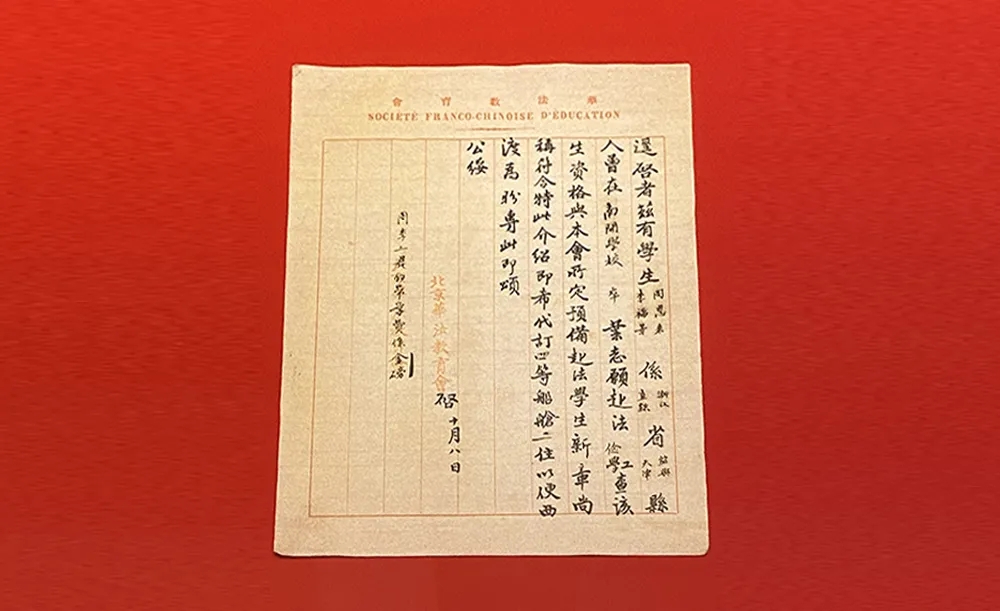 華法教育會
SOCIÉTÉ FRANCO-CHINOISE D'ÉDUCATION
逕啓者茲有學生周恩來李福景係浙江直隸省紹興天津縣
人曾在南開學校卒業志願赴法儉學工查該
生資格與本會所定預備赴法學生新章尚
稱符合特此介紹即希代訂四等船艙二位以便西
渡爲盼專此即頌
公綏
北京華法教育會啓
十月八日
周李二君的學費係金鎊